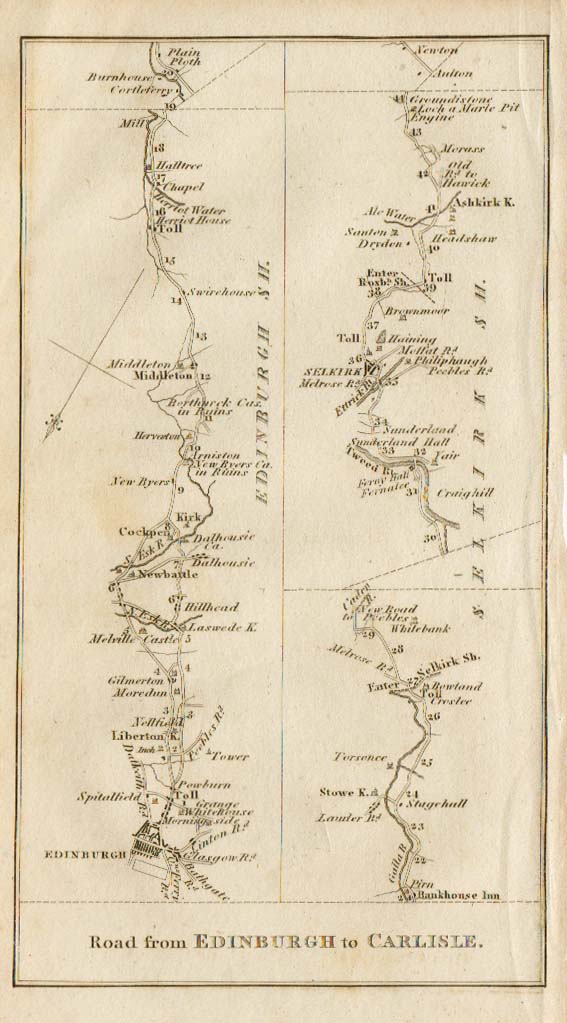 Plain
Ploth
20
Burnhouse
Cortleferry
19
Mill
18
Halltree
17
Chapel
Herriot Water
16
Herriot House
Toll
15
Swirehouse
14
13
Middleton
Middleton
12
Borthwick Cas.
in Ruins
11
Herverton
10
Arniston
New Byers Ca.
in Ruins
New Byers
9
EDINBURGH SH.
Kirk
8
Cockpen
Dalhousie
Ca.
S. Esk R.
Dalhousie
Newbattle
6
6
Hillhead
N. Esk R.
Laswede K.
5
5
Melville Castle
4
4
Gilmerton
Moredun
3
3
Nellfield
Liberton K.
Inch
2
2
Peebles Rd
Tower
Dalkeith Rd
Powburn
Toll
Spitalfield
Grange
Whitehouse
Morningside
Linton Rd
EDINBURGH
Glasgow Rd
Bathgate
Rd
Queensferry
Rd
Newton
Aulton
44
Groundistone
Loch a Marle Pit
Engine
43
Morass
42
Old
Rd to
Hawick
41
Ashkirk K.
Ale Water
Santon
Dryden
Headshaw
40
Enter
Roxbh Sh.
Toll
39
38
Brownmoor
37
Toll
Haining
36
Moffat Rd
Philiphaugh
SELKIRK
Peebles Rd
Melrose Rd
35
Ettrick R.
34
Sunderland
Sunderland Hall
33
32
Yair
Tweed R.
Feray Hall
Fernalee
31
Craighill
30
SELKIRK SH.
Caden R.
New Road
to Peebles
29
Whitebank
28
Melrose Rd
Selkirk Sh.
27
Enter
Bowland
Toll
Croslee
26
25
Torsonce
24
Stowe K.
Stagehall
Lauder Rd
23
Galla R.
22
Pirn
21
Bankhouse Inn
Road from EDINBURGH to CARLISLE.